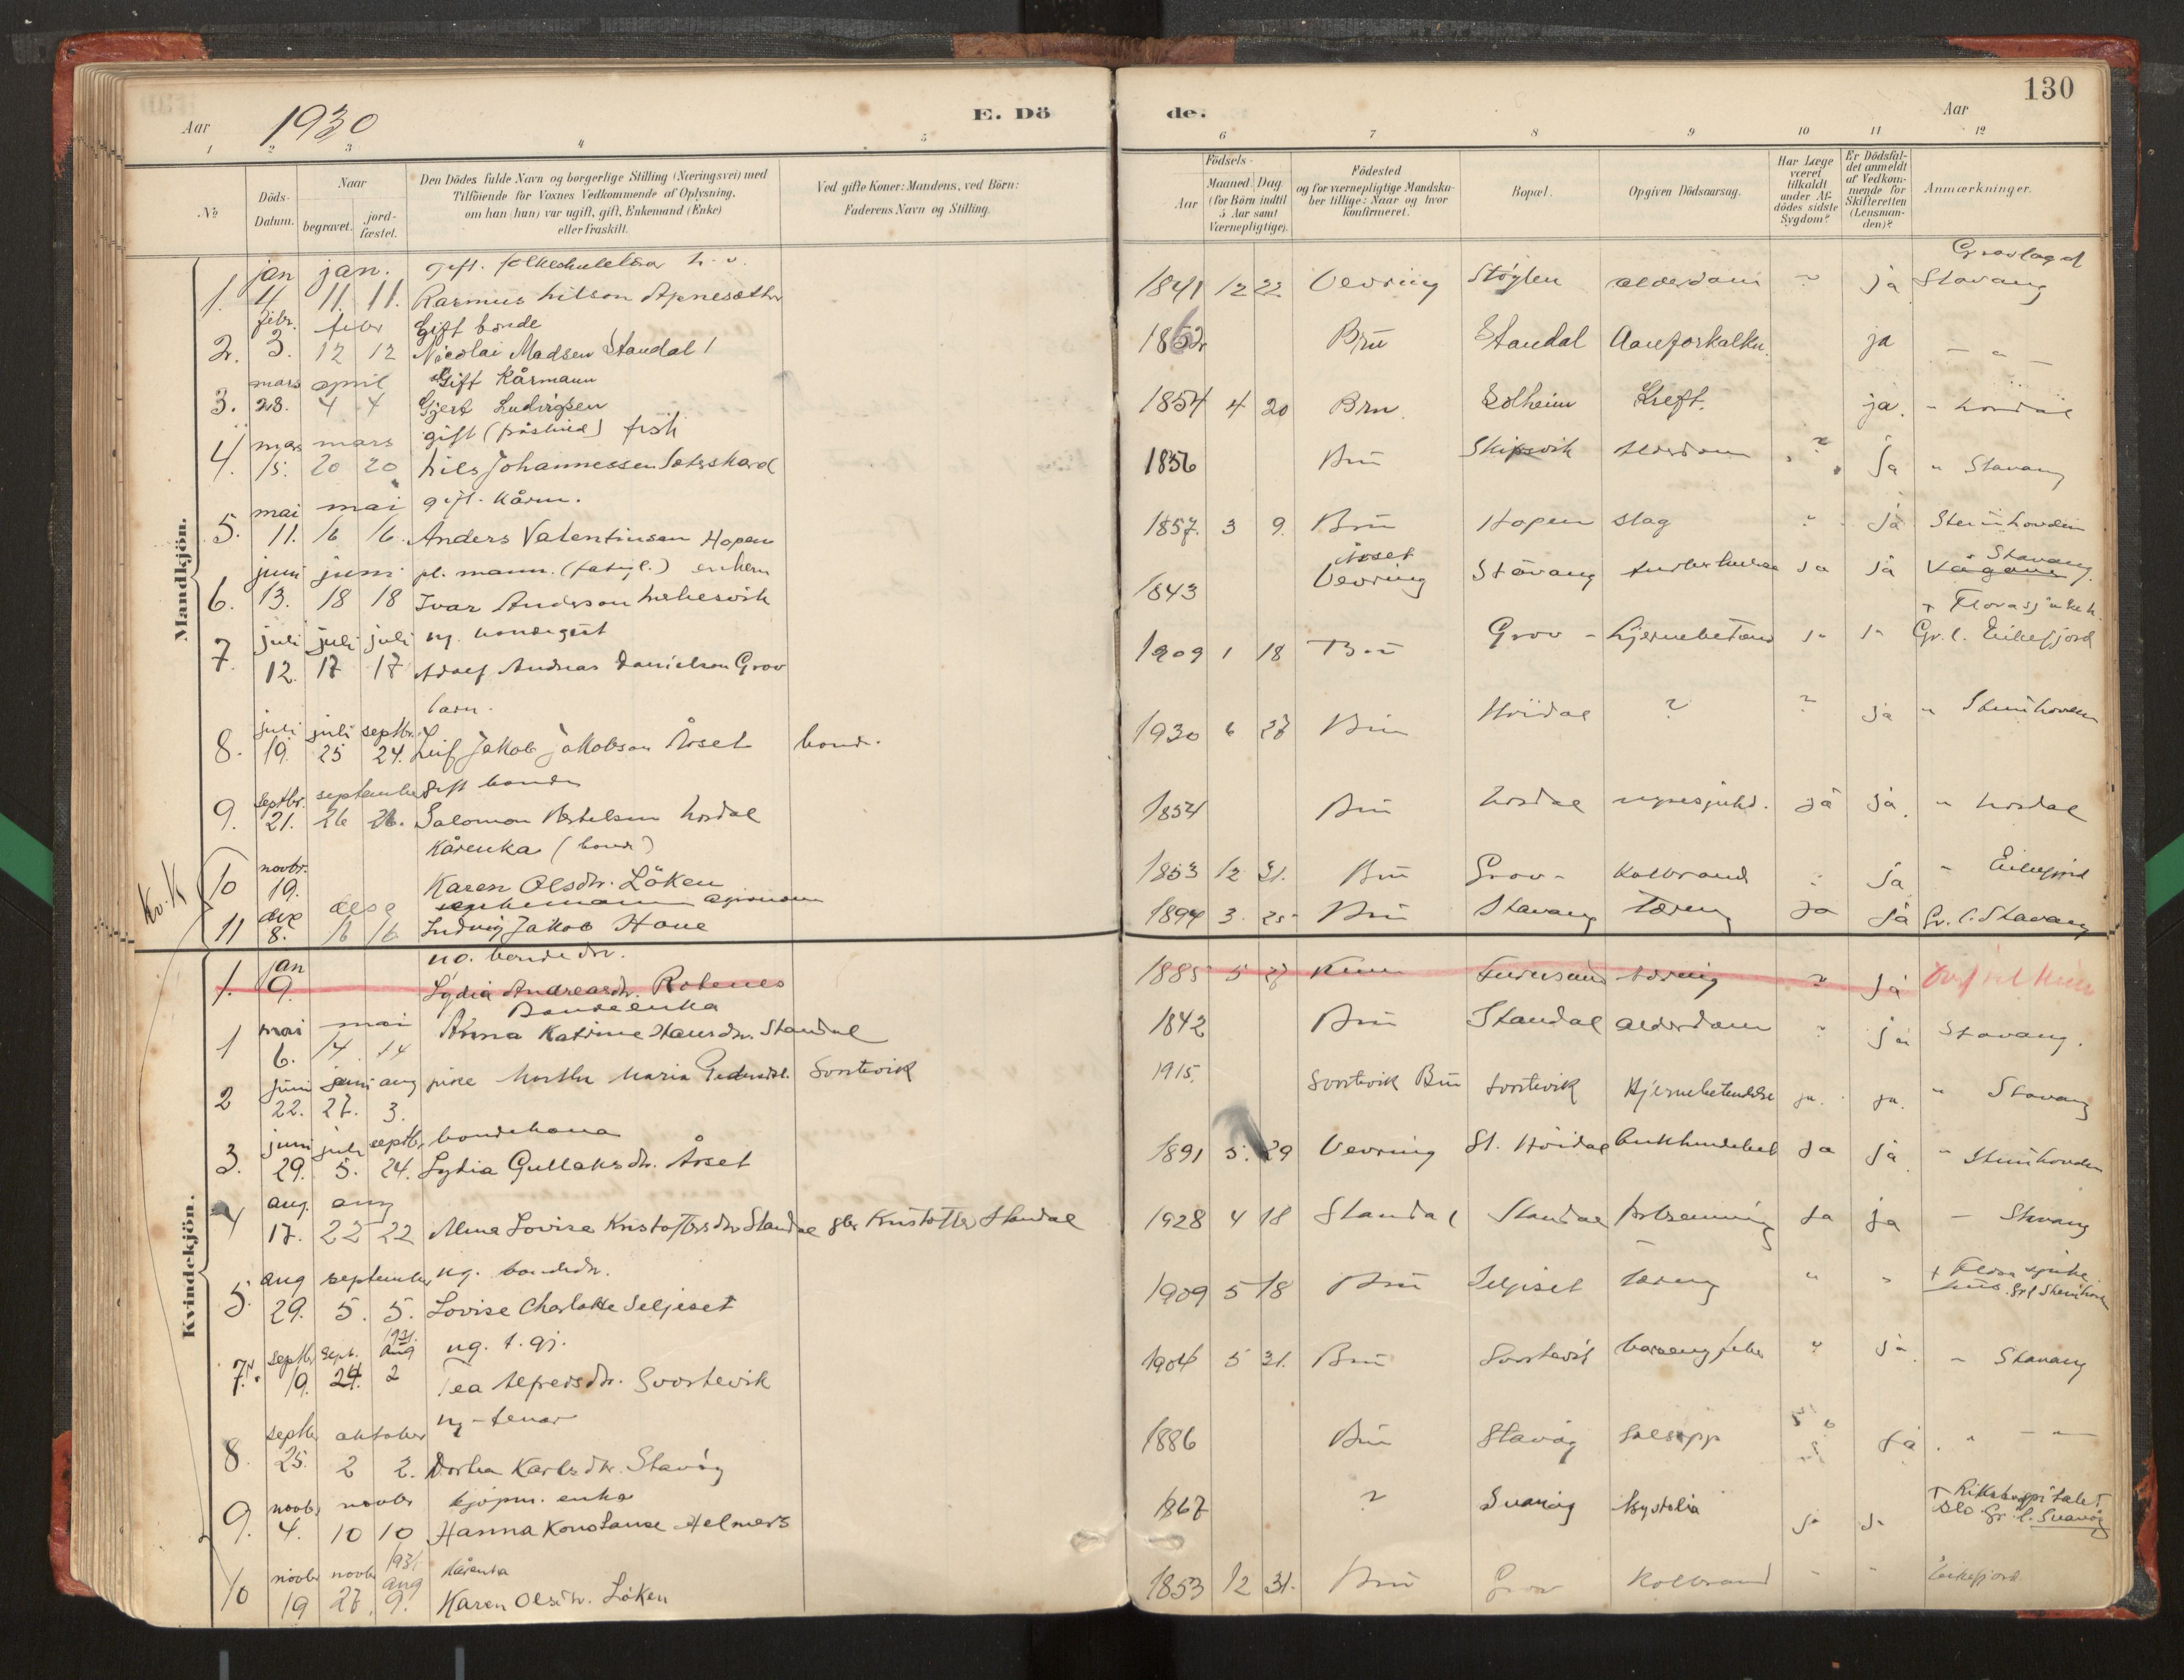 130
Aar 1930
E. Dö de.
Aar
1 2 3 4 5 6 7 8 9 10 11 12
No
Döds-Datum.
Naar
begravet.
jord-fæstet.
Den Dödes fulde Navn og borgerlige Stilling (Næringsvei) med
Tilföiende for Voxnes Vedkommende af Oplysning,
om han (hun) var ugift, gift, Enkemand (Enke)
eller fraskilt.
Ved gifte Koner: Mandens, ved Börn:
Faderens Navn og Stilling.
Födsels-
Aar
Maaned. Dag.
(for Börn indtil
5 Aar samt
Værnepligtige).
Födested
og for værnepligtige Mandska-
ber tillige: Naar og hvor
konfirmeret.
Bopæl.
Opgiven Dödsaarsag.
Har Læge
været
tilkaldt
under Af-
dödes sidste
Sygdom?
Er Dödsfal-
det anmeldt
af Vedkom-
mende for
Skifteretten
(Lensman-
den)?
Anmærkninger.
Mandkjön.
jan jan. Gift. Gravlagd
1. 4 11. 11. Rasmus Nilson 1841 12 22 Vevring Støylen alderdom ja Stavang
febr. febr Gift bonde
2. 3. 12 12 Nicolai Madsen Standal 1862 Bru Standal Aareforkalkn. ja - " -
mars april Gift Kårmann
3. 28. 4 4 Gjert Ludvigsen 1854 4 20 Bru. Solheim Kreft. ja. - Nordal
mars mars gift fisk
4. 15. 20 20 Nils Johannessen 1856 Bru Skipsvik alderdom ? ja " Stavang
mai mai gift. Kårm.
5. 11. 16 16. Anders Valentinsen Hopen 1857. 3 9. Bru Hopen slag ja Steinhovden
juni juni mann. enkem Åset Stavang.
6. 13. 18 18 Ivar Anderson 1843 Vevring Stavang ja ja Vågane
juli juli juli ug. + Florø sjukeh.
7. 12. 17 17 Adolf Andreas Danielson Grov 1909 1 18 Bru Grov Gr.l. Eikefjord
barn.
juli juli septbr.
8. 19. 25 24. Leif Jakob Jakobson Åset bonde. 1930 6 27 Bru Høidal ? ? ja " Steinhovden
septbr. september Gift bonde
9. 21. 26 26. Salomon Nordal 1854 Bru Nordal nyresjukd. ja ja. " Nordal
Kårenka (bonde)
Kv.K
10 novbr. 19. Karen Olsdtr. Löken 1853 12 31. Bru Grov Koldbrand ja " Eikefjord
des
11 8. 16 16 Ludvig Jakob Hove 1894 3. 25 Bru Stavang Tæring ja ja Gr. l. Stavang
Kvindekjön.
jan ug. bondedtr.
1. 9. Lydia Andreasdtr. 1885 5 27 Kinn tæring ? ja
Bondeenka
mai mai
1 6. 14. 14 Anna Katrine Hansdtr. Standal 1842 Bru Standal alderdom ja Stavang.
juni juni aug pike
2 22. 27. 3. Maria Svortevik 1915. Svortevik Bru Svortevik Hjernebetendelse ja. ja. " Stavang
juni juli septbr. bondekona
3. 29. 5. 24. Lydia Gullaksdtr. Åset 1891 5. 29 Vevring St. Høidal ja ja " Steinhovden
aug. aug
4 17. 22 22 Alma Lovise Kristoffersdtr Standal Kristoffer Standal 1928 4 18 Standal Standal forbrenning ja ja - Stavang
aug september ug. bondedtr.
5. 29. 5. 5. Lovise Charlotte Seljeset 1909 5 18 Bru Seljeset tæring " " + Florø sjuke hus. Gr.l Steinhovden
septbr sept. 1931. aug ug. t. gj.
7. 19. 24. 2 Tea Alfredsdtr. Svortevik 1904 5 31. Bru Svortevik " ja - Stavang
septbr oktober ug-tenar
8. 25. 2 2. Dorthea Karlsdtr. Stavøy 1886 Bru Stavøy ja
novbr novbr kjøpm. enka
9. 4. 10 10 Hanna Konstanse Helmers 1867 ? Svanøy ja + Rikshospitalet Oslo Gr. l. Svanøy
novbr novbr 1931 aug Kårenka
10 19 27. 9. Karen Olsdtr. Löken 1853 12 31. Bru Grov Koldbrand " " Eikefjord.